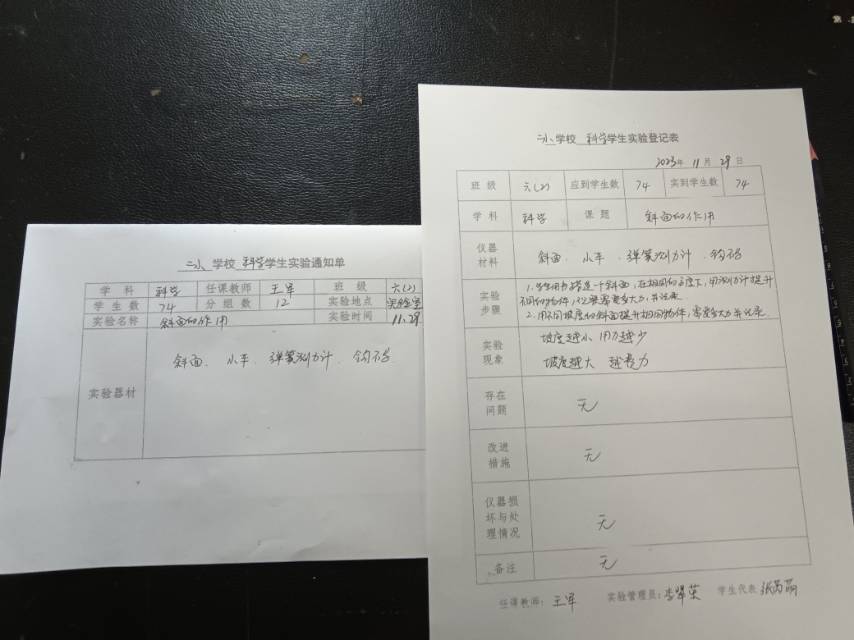 二小学校 科学学生实验通知单
学科 科学 任课教师 王军 班级 六(2)
学生数 74 分组数 12 实验地点 实验室
实验名称 斜面的作用 实验时间 11.29
实验器材 斜面、小车、弹簧测力计、钩码
二小学校 科学学生实验登记表
2023年 11月 29日
班级 六(2) 应到学生数 74 实到学生数 74
学科 科学 课题 斜面的作用
仪器材料 斜面、小车、弹簧测力计、钩码
实验步骤 1.学生用书搭建一个斜面,在相同的高度下,用测力计提升
不同的物体,记录需要多大力,并记录.
2.用不同坡度的斜面提升相同物体,需要多大力并记录.
实验现象 坡度越小 用力越少
坡度越大 越费力
存在问题 无
改进措施 无
仪器损坏与处理情况 无
备注 无
任课教师:王军 实验管理员:李翠英 学生代表